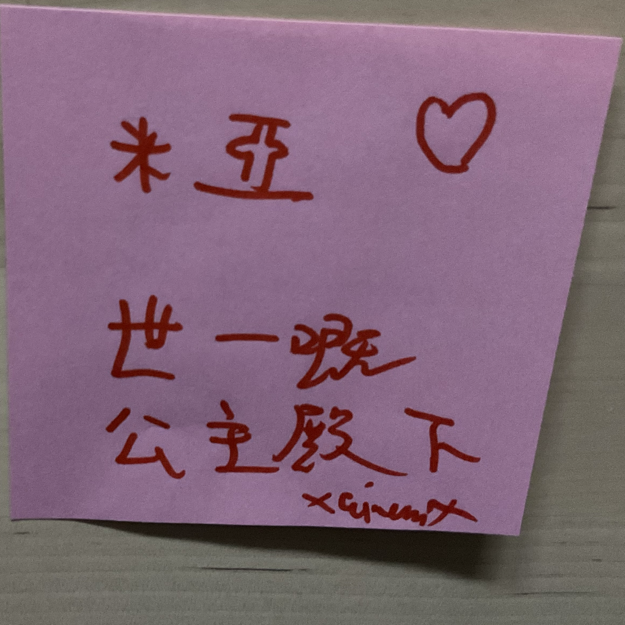 米亞 ♡
世一嘅
公主殿下